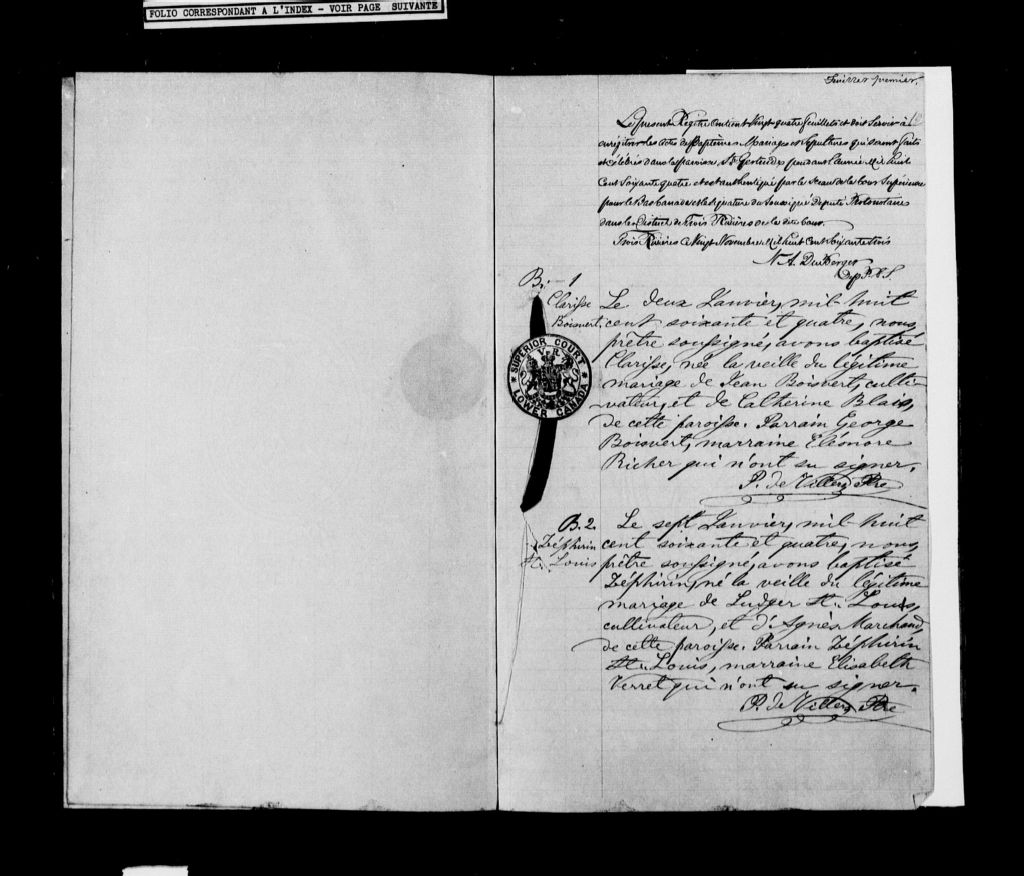 FOLIO CORRESPONDANT A L'INDEX - VOIR PAGE SUIVANTE
feuillet premier.
Le Présent Régitre Contient Vingt quatre feuillets et doit Servir à l'
enregistrer les actes de Baptêmes Mariages et Sépultures qui seront faits
et célébrés dans la paroisse Ste Gertrude pendant l'année Mil huit
Cent Soixante quatre et est authentiqué par le Sceau de la Cour Supérieure
pour le Bas Canada et la Signature du Soussigné Député Protonotaire
dans le District de Trois Rivières de la dite Cour.
Trois Rivières Vingt Novembre Mil huit Cent Soixante trois
Dep P.C.S.
B. 1
Clarisse
Boisvert.
Le deux Janvier, mil huit
cent soixante et quatre, nous,
prêtre soussigné, avons baptisé
Clarisse, née la veille du légitime
mariage de Jean Boisvert, culti
vateur, et de Catherine Blais,
de cette paroisse. Parrain George
Boisvert, marraine Eléonore
Richer qui n'ont su signer.
P. de Villers Ptre
SUPERIOR COURT
V R
LOWER CANADA
B. 2.
Zéphirin
St. Louis
Le sept Janvier, mil huit
cent soixante et quatre, nous,
prêtre soussigné, avons baptisé
Zéphirin, né la veille du légitime
mariage de Ludger St. Louis,
cultivateur, et d'Agnès Marchand,
de cette paroisse. Parrain Zéphirin
St. Louis, marraine Elisabeth
Verret qui n'ont su signer.
P. de Villers Ptre